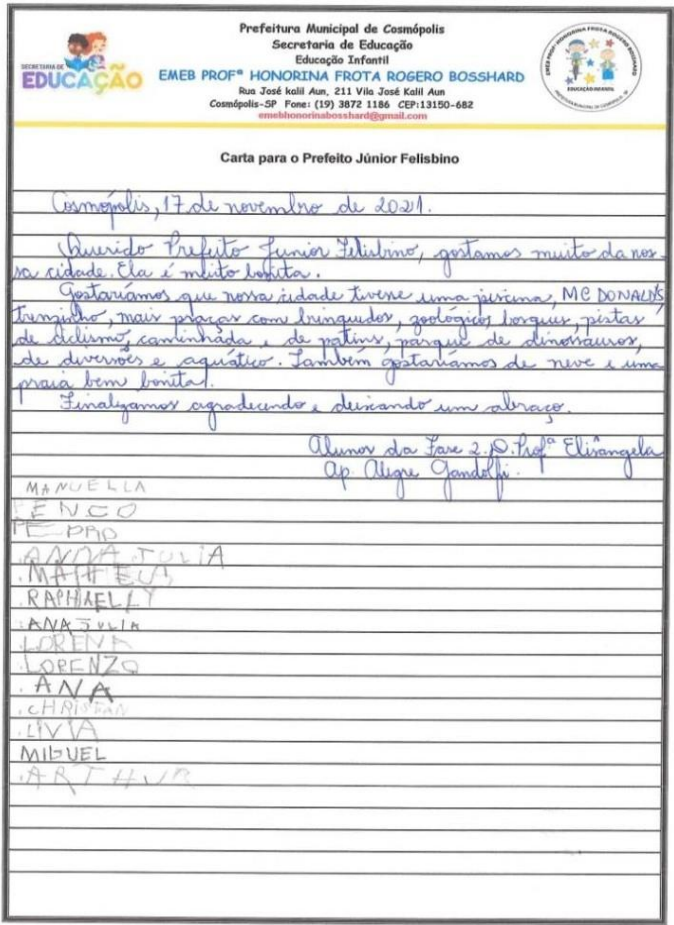 Prefeitura Municipal de Cosmópolis
Secretaria de Educação
Educação Infantil
EMEB PROFª HONORINA FROTA ROGERO BOSSHARD
Rua José kalil Aun, 211 Vila José Kalil Aun
Cosmópolis-SP Fone: (19) 3872 1186 CEP:13150-682
emebhonorinabosshard@gmail.com
SECRETARIA DE
EDUCAÇÃO
EMEB PROFª HONORINA FROTA ROGERO BOSSHARD
EDUCAÇÃO INFANTIL
PREFEITURA MUNICIPAL DE COSMÓPOLIS - SP
Carta para o Prefeito Júnior Felisbino
Cosmópolis, 17 de novembro de 2021.
Querido Prefeito Junior Felisbino, gostamos muito da nos-
sa cidade. Ela é muito bonita.
Gostaríamos que nossa cidade tivesse uma piscina, MC DONALD'S,
trenzinho, mais praças com brinquedos, zoológico, bosques, pistas
de ciclismo, caminhada e de patins, parque de dinossauros,
de diversões e aquático. Também gostaríamos de neve e uma
praia bem bonita!
Finalizamos agradecendo e deixando um abraço.
Alunos da Fase 2. D. Profª Elisângela
Ap. Alegre Gandolfi.
MANUELLA
ENCO
PEDRO
ANNA JULIA
.MATHEUS
RAPHAELLY
.ANA JULIA
.LORENA
.LORENZO
.ANA
.CHRISTIAN
.LIVIA
MIGUEL
.ARTHUR